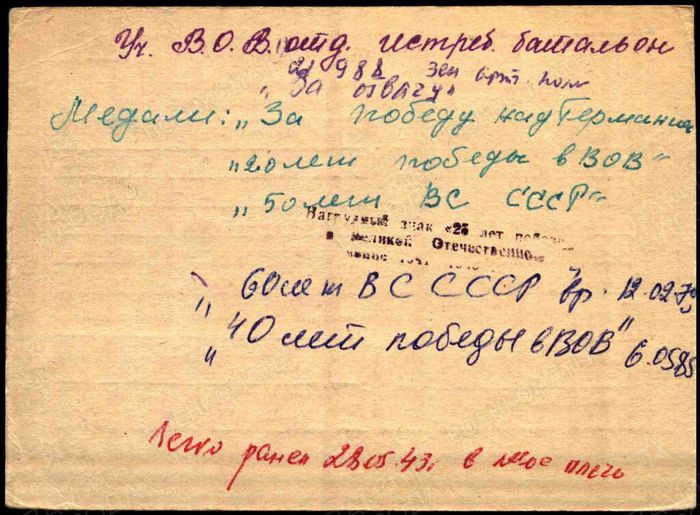 Уч. В.О.В. отд. истреб. батальон
21988 зен арт. полк
„За отвагу“
Медали: „За победу над Германией
„20 лет победы в ВОВ“
„50 лет ВС СССР“
Нагрудный знак «25 лет победы
в Великой Отечественной
войне 1941—1945
„60 лет ВС СССР“ вр. 12.02.79
„40 лет победы в ВОВ“ 6.0585
Легко ранен 28.05.43г в плечо